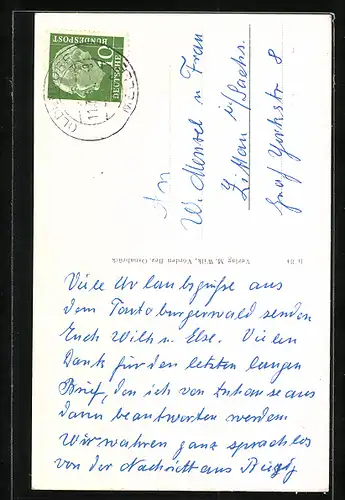 DEUTSCHE
BUNDESPOST
10
An
W. Menzel u Frau
Zittau i/Sachs.
Graf Yorkstr 8
Verlag M. Wilk, Vörden Bez. Osnabrück
Viele Urlaubsgrüße aus
dem Teutoburgerwald senden
Euch Wilh u. Else. Vielen
Dank für den letzten langen
Brief, den ich von Zuhause aus
dann beantworten werden
Wir waren ganz sprachlos
von der Nachricht aus